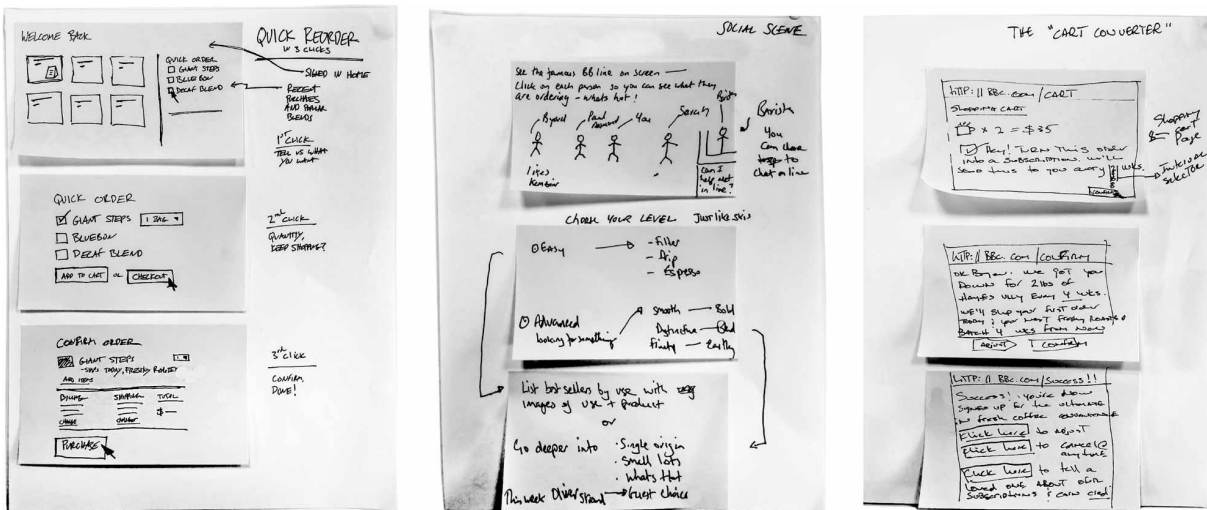 WELCOME BACK
QUICK ORDER
GIANT STEPS
BLUEBON
DECAF BLEND
QUICK REORDER
IN 3 CLICKS
SIGNED IN HOME
RECENT
PURCHASES
AND POPULAR
BLENDS
1ST CLICK
TELL US WHAT
YOU WANT
QUICK ORDER
GIANT STEPS 1 BAG
BLUEBON
DECAF BLEND
ADD TO CART OR CHECKOUT
2nd CLICK
QUANTITY,
KEEP SHOPPING?
CONFIRM ORDER
GIANT STEPS
- SHIPS TODAY, FRESHLY ROASTED
ADD ITEMS
BILLING SHIPPING TOTAL
$ —
CHANGE CHANGE
PURCHASE
3rd CLICK
CONFIRM,
DONE!
SOCIAL SCENE
See the famous BB line on screen
Click on each person so you can see what they
are ordering - whats hot!
Byard Paul You Sarah
likes
can I
help
in line?
Barista
You
can
to
chat on line
CHOOSE YOUR LEVEL Just like skis
Easy
- Filter
- Drip
- Espresso
Advanced
looking for something
smooth — Bold
Fruity — Earthy
List best sellers by use with
images of use + product
or
Go deeper into · Single origin
· Small lots
· Whats Hot
This week Oliver Strand → Guest choice
THE "CART CONVERTER"
HTTP://BBC.COM/CART
SHOPPING CART
x 2 = $35
Hey! TURN THIS order
INTO A SUBSCRIPTION. We'll
SEND THIS TO YOU every 2 WKS.
CONFIRM
Shopping
cart
page
Interval
selector
HTTP://BBC.COM/CONFIRM
OK Bryan. We got you
DOWN FOR 2 lbs OF
HAYES VLLY Every 4 wks.
WE'LL SHIP your first order
TODAY & your NEXT Freshly Roasted
BATCH 4 wks from Now
ADJUST CONFIRM
HTTP://BBC.COM/SUCCESS!!
Success! you're Now
SIGNED UP for the ultimate
IN fresh coffee convenience
Click here to ADJUST
Click here to CANCEL @
anytime
Click here to tell a
LOVED ONE ABOUT OUR
SUBSCRIPTIONS & earn cred